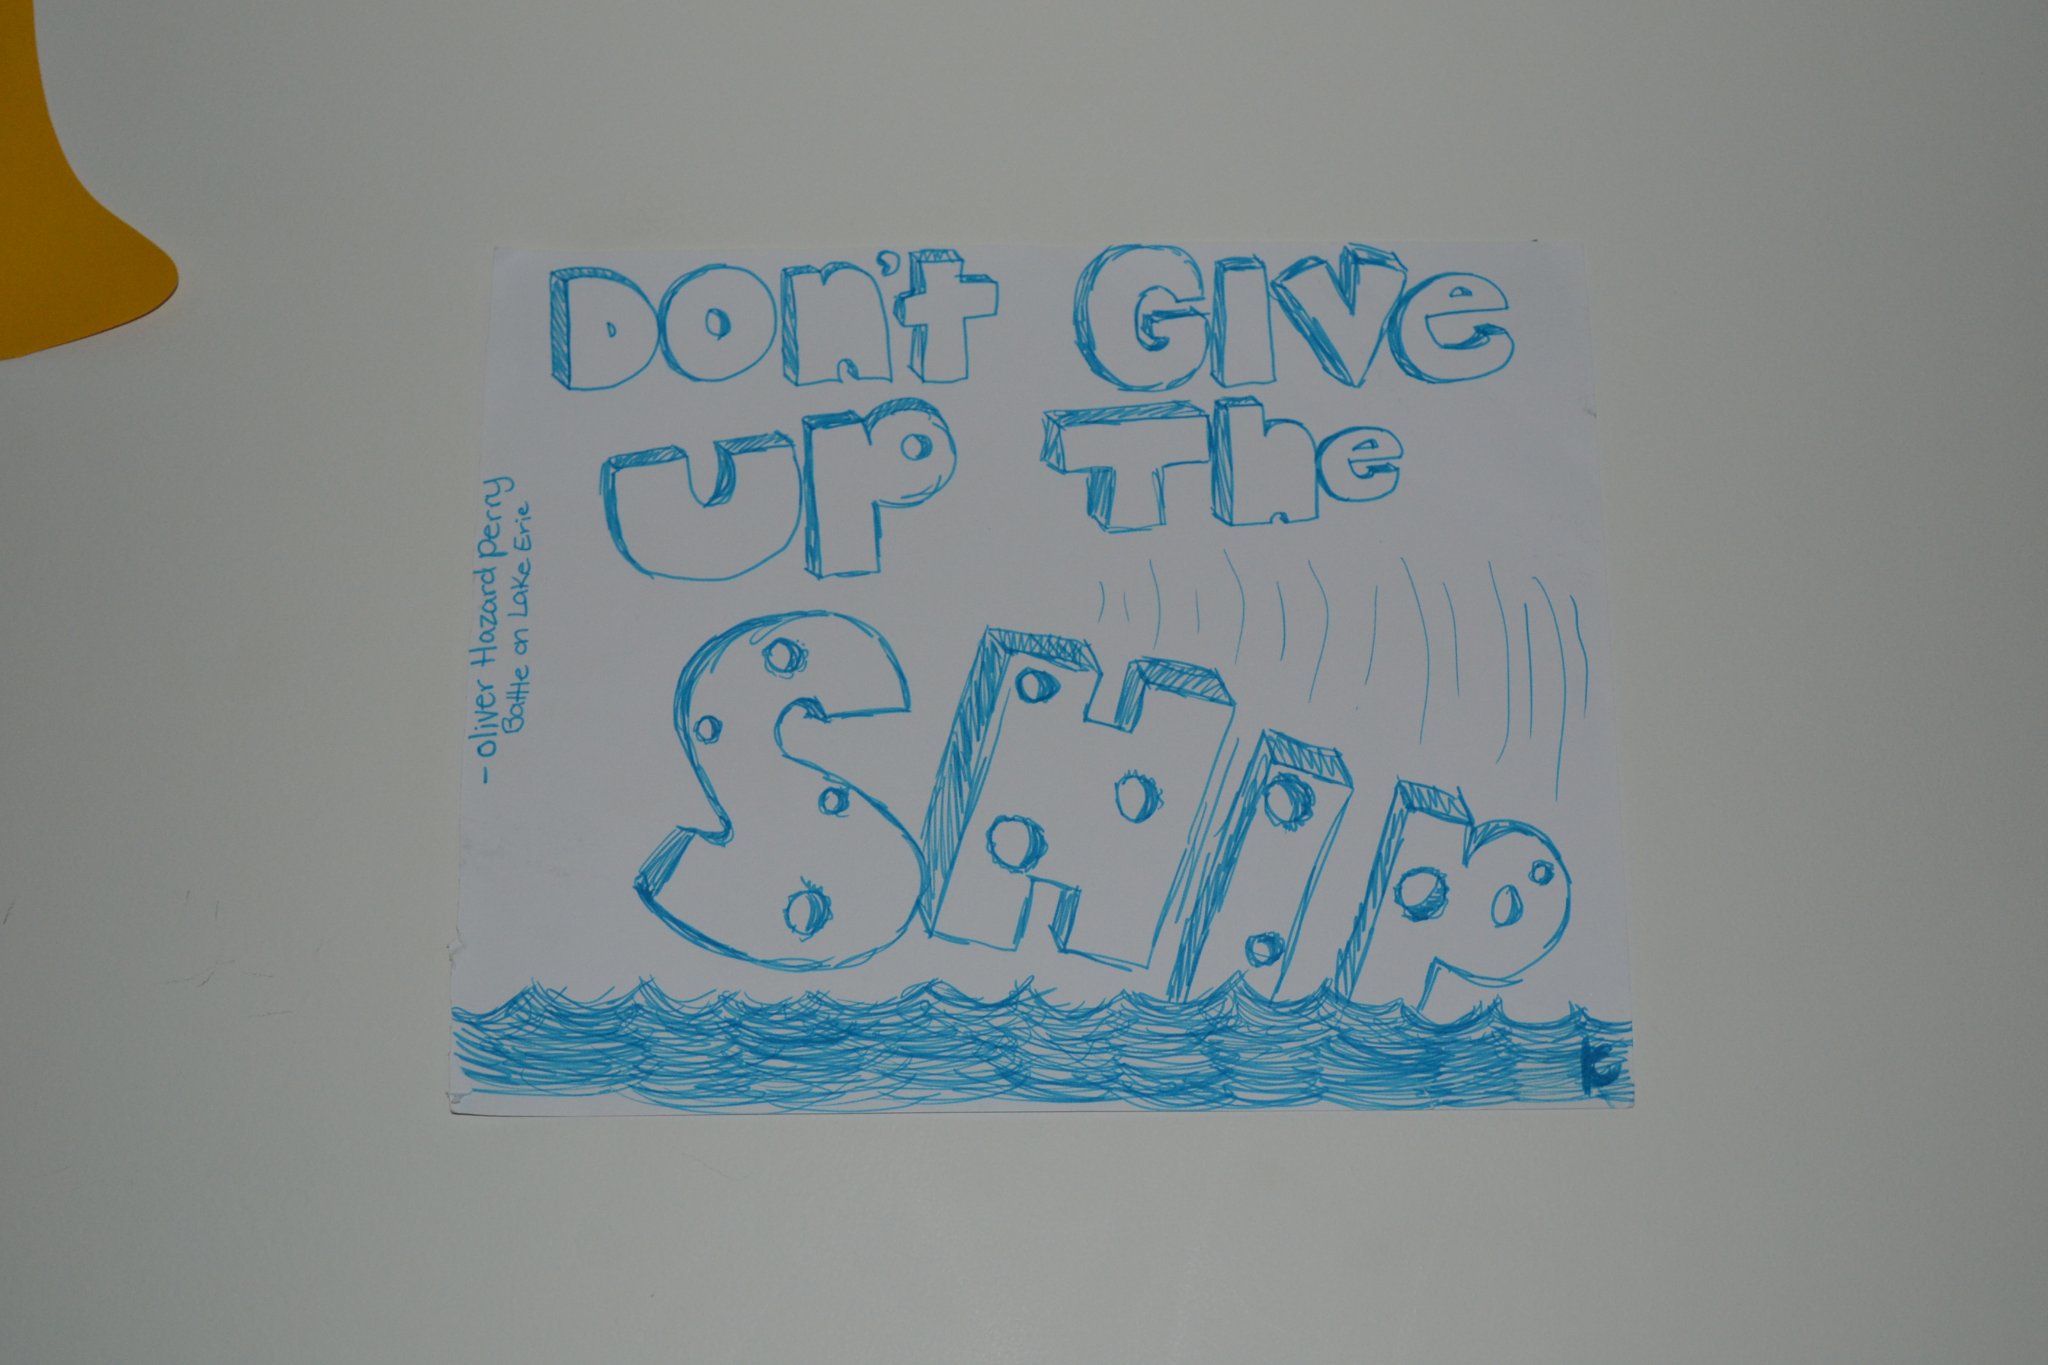 Don't GIVe
UP The
SHip
- Oliver Hazard Perry
Battle on Lake Erie